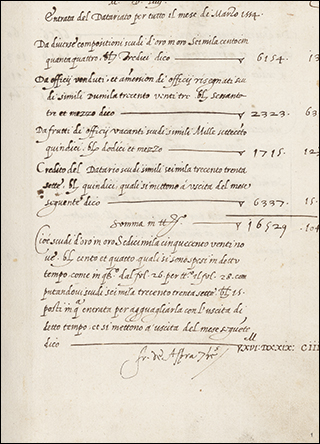 Entrata del Datariato per tutto il mese di Marzo 1554.
Da diverse compositioni scudi d'oro in oro sei mila cento cin
quantaquattro. bl. tredici dico 6154. 13
Da officij venduti, et amession di officij risegnati scu
di simili Dumila trecento venti tre bl. sessanta
tre et mezzo dico 2323. 63
Da frutti di officij vacanti scudi simili Mille settecēto
quindici. bl. dodici et mezzo 1715. 12
Credito del Datario scudi simili sei mila trecento trenta
sette bl. quindici, quali si mettono a uscita del mese
seguente dico 6337. 15
Somma in tt. 16529. 104
Cioè scudi d'oro in oro Sedici mila cinquecento venti no
ve. bl. cento et quatro quali si sono spesi in detto
tempo come in q. dal fol. 26. per tt. el fol. 28. com
putandovi scudi sei mila trecento trenta sette bl. 15.
posti in q. entrata per agguagliarla con l'uscita di
detto tempo. et si mettono a uscita del mese seguēte
dico XVI. DXXIX. CIII
Jo. de Aspra